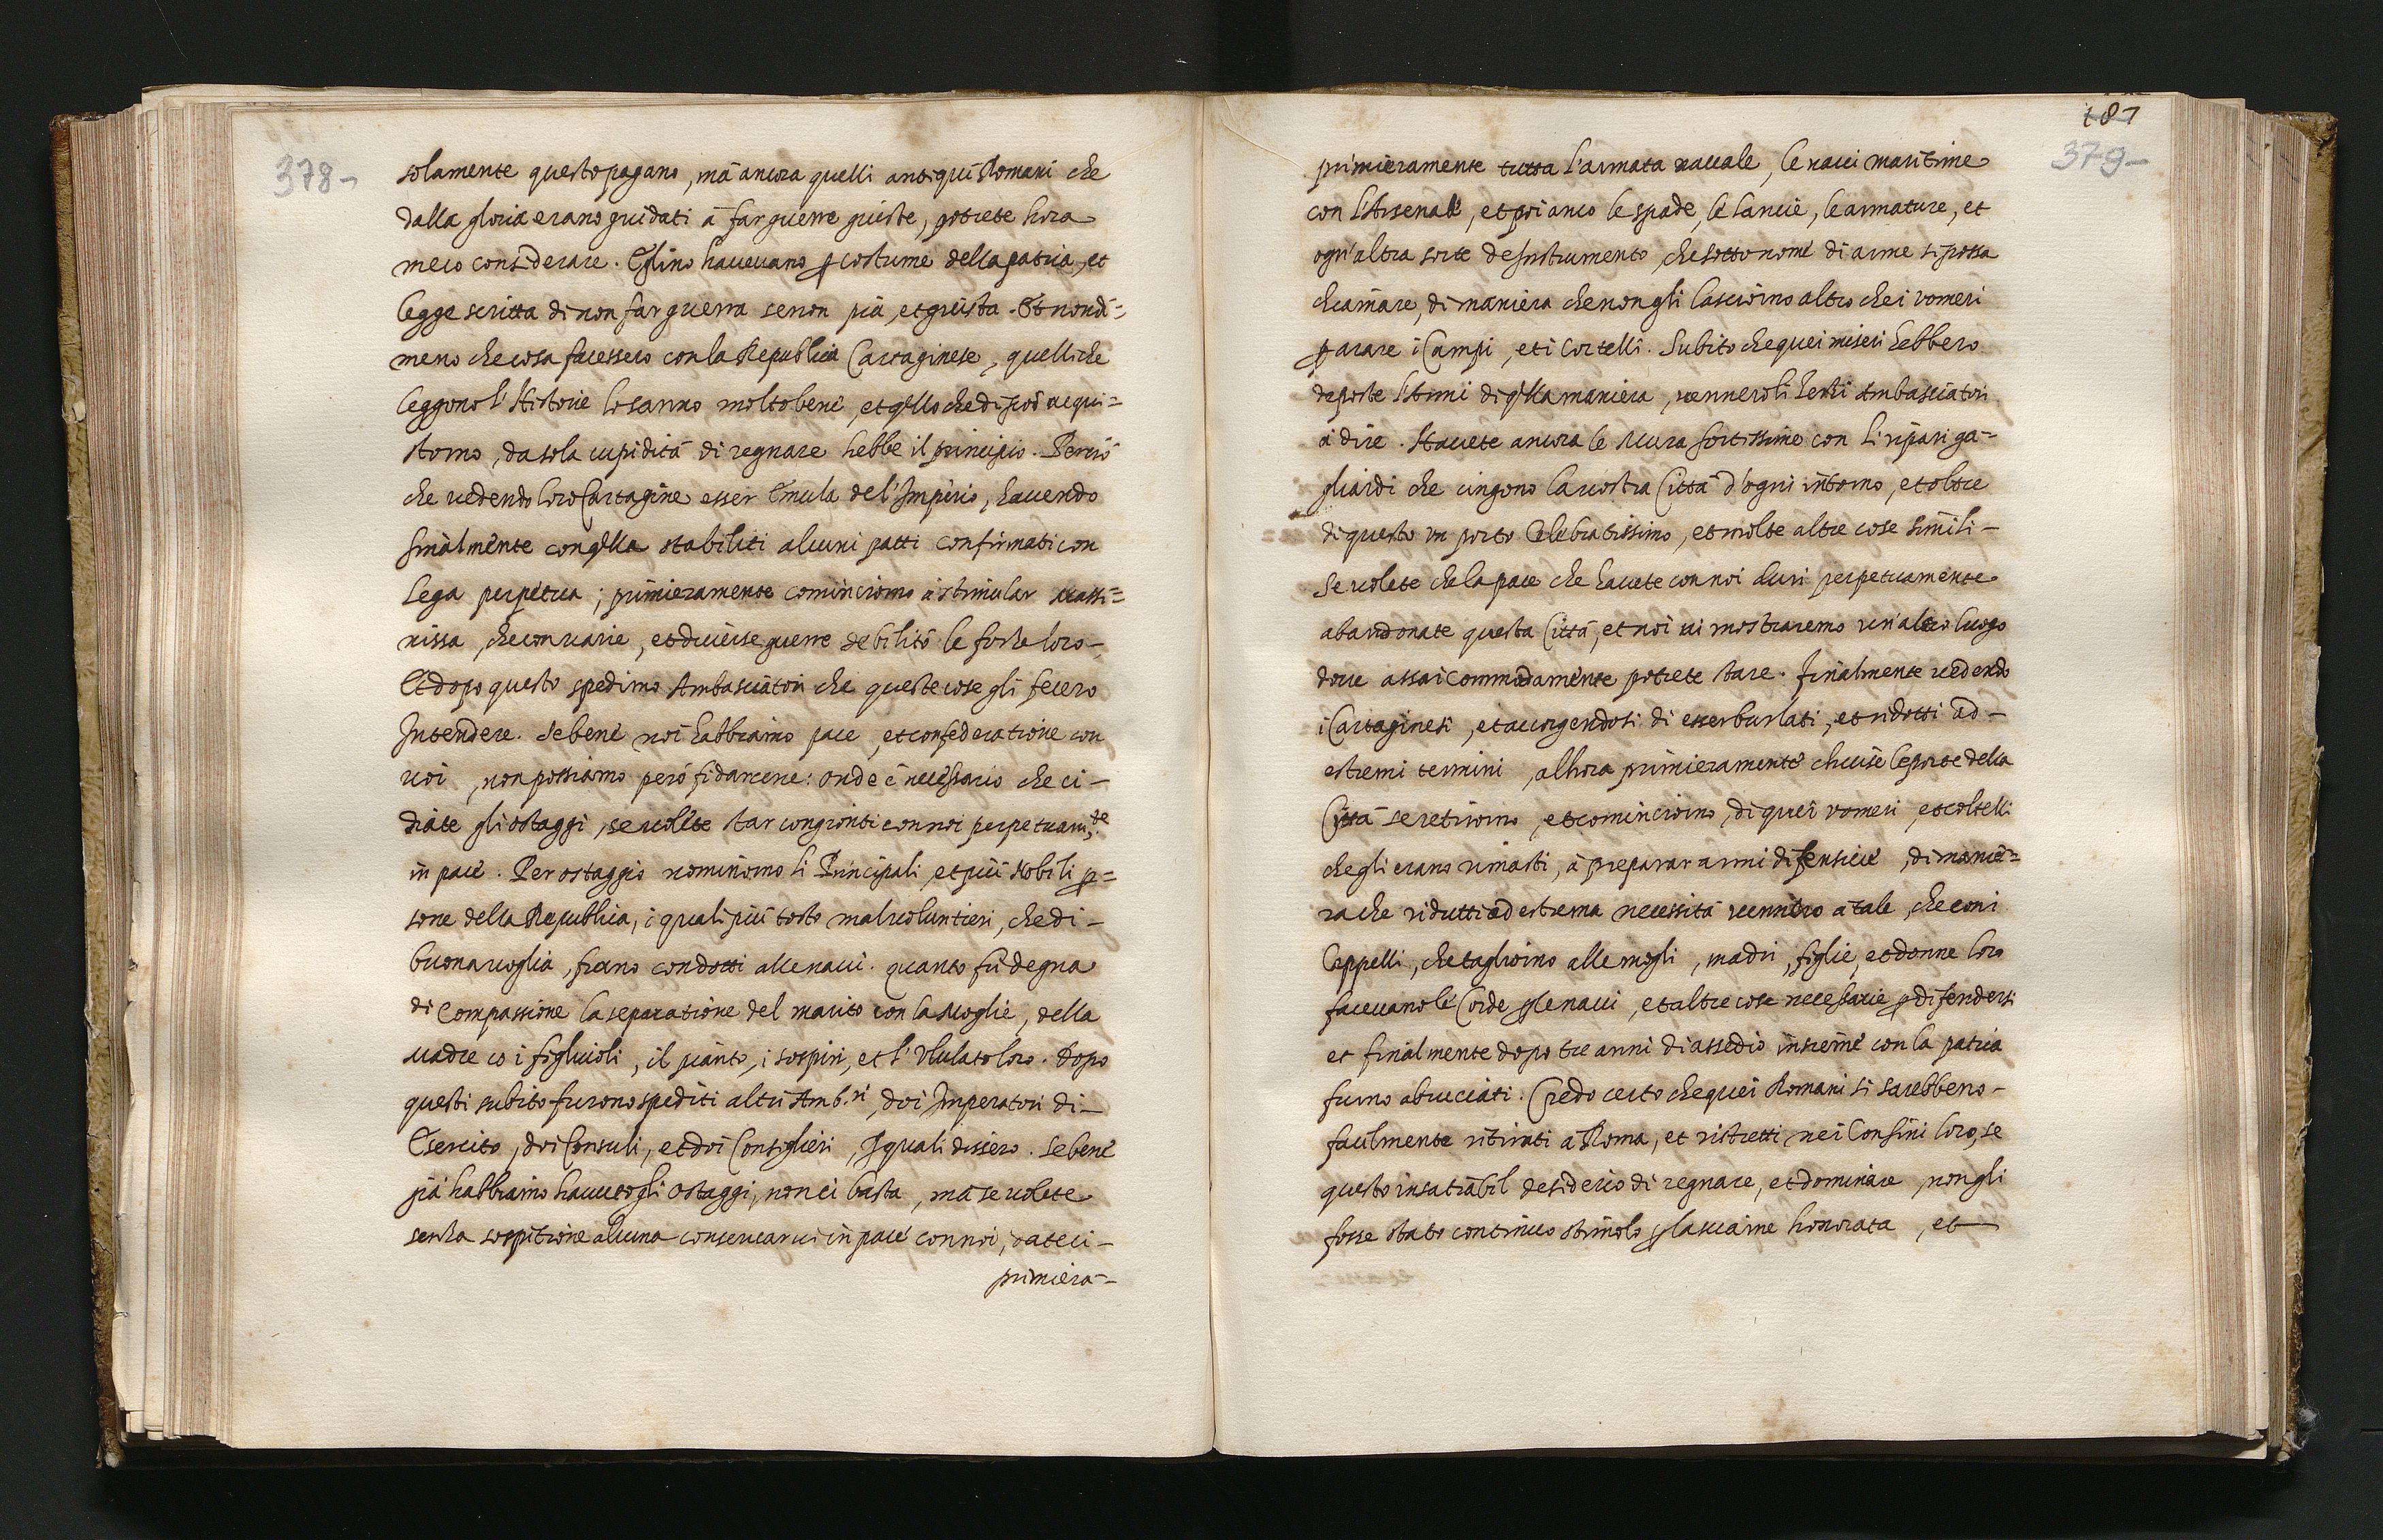 378-
solamente questo pagano, mà ancora quelli antiqui Romani che
dalla gloria erano guidati à far guerre giuste, potrete hora
meco considerare. Eglino haueuano ꝑ costume della patria, et
legge scritta di non far guerra senon pia, et giusta. Et nondi=
meno che cosa facessero con la Republica Cartaginese, quelli che
leggono l'Historie lo sanno molto bene, et qllo che dipoi acqui=
storno, da sola cupidità di regnare hebbe il principio. Perciò
che uedendo loro Cartagine esser Emula del'Imperio, hauendo
finalmente con qlla stabiliti alcuni patti confirmati con
Lega perpetua; primieramente cominciorno à stimular Massi=
nissa, che con uarie, et diuerse guerre debilitò le forze loro-
Et dopo questo spedirno Ambasciatori che queste cose gli fecero
Intendere. Sebene noi habbiamo pace, et confederatione con
uoi, non possiamo però fidarcene: onde è necessario che ci-
diate gli ostaggi, se uolete star congionti con noi perpetuam.te
in pace. Per ostaggio nominorno li Principali, et più Nobili ꝑ=
sone della Republica, i quali più tosto mal uoluntieri, che di-
buona uoglia, furno condotti alle naui. quanto fù degna
di Compassione la separatione del marito con la Moglie, della
Madre co i figliuoli, il pianto, i sospiri, et l'Vlulato loro. Dopo
questi subito furono spediti altri Amb.ri, doi Imperatori di-
Esercito, doi Consuli, et doi Consiglieri, I quali dissero. Se bene
già habbiamo hauuto gli ostaggi, non ci basta, mà se uolete
senza sospitione alcuna conseruarui in pace con noi, dateci-
primiera-
187
379-
primieramente tutta l'armata nauale, le naui maritime
con l'Arsenale, et poi anco le spade, le lancie, le armature, et
ogn'altra sorte de Instrumento, che sotto nome di arme si possa
chiamare, di maniera che non gli lasciorno altro che i vomeri
ꝑ arare i Campi, et i Cortelli. Subito che quei miseri hebbero
deposte l'Armi di qlla maniera, uennero li Terzi Ambasciatori
à dire. Hauete ancora le Mura fortissime con li ripari ga-
gliardi che cingono la uostra Città d'ogni intorno, et oltre
di questo un porto Celebratissimo, et molte altre cose simili-
Se uolete che la pace che hauete con noi duri perpetuamente
abandonate questa Città, et noi ui mostraremo un'altro luogo
doue assai commodamente potrete stare. Finalmente uedendo
i Cartaginesi, et accorgendosi di esser burlati, et ridotti ad-
estremi termini, alhora primieramente chiuse le porte della
Città se retirorno, et cominciorno, di quei vomeri, et coltelli
che gli erano rimasti, à preparar armi difensiue, di manie=
ra che ridutti ad estrema necessità uennero à tale, che con i
Cappelli, che tagliorno alle mogli, madri, figlie, et donne loro
faceuano le Corde ꝑ le naui, et altre cose necessarie ꝑ difendersi
et finalmente dopo tre anni di assedio insieme con la patria
furno abruciati. Credo certo che quei Romani si sarebbeno-
facilmente ritirati à Roma, et ristretti nei Confini loro, se
questo insatiabil desiderio di regnare, et dominare, non gli
fosse stato continuo stimolo ꝑ lasciarne honorata, et